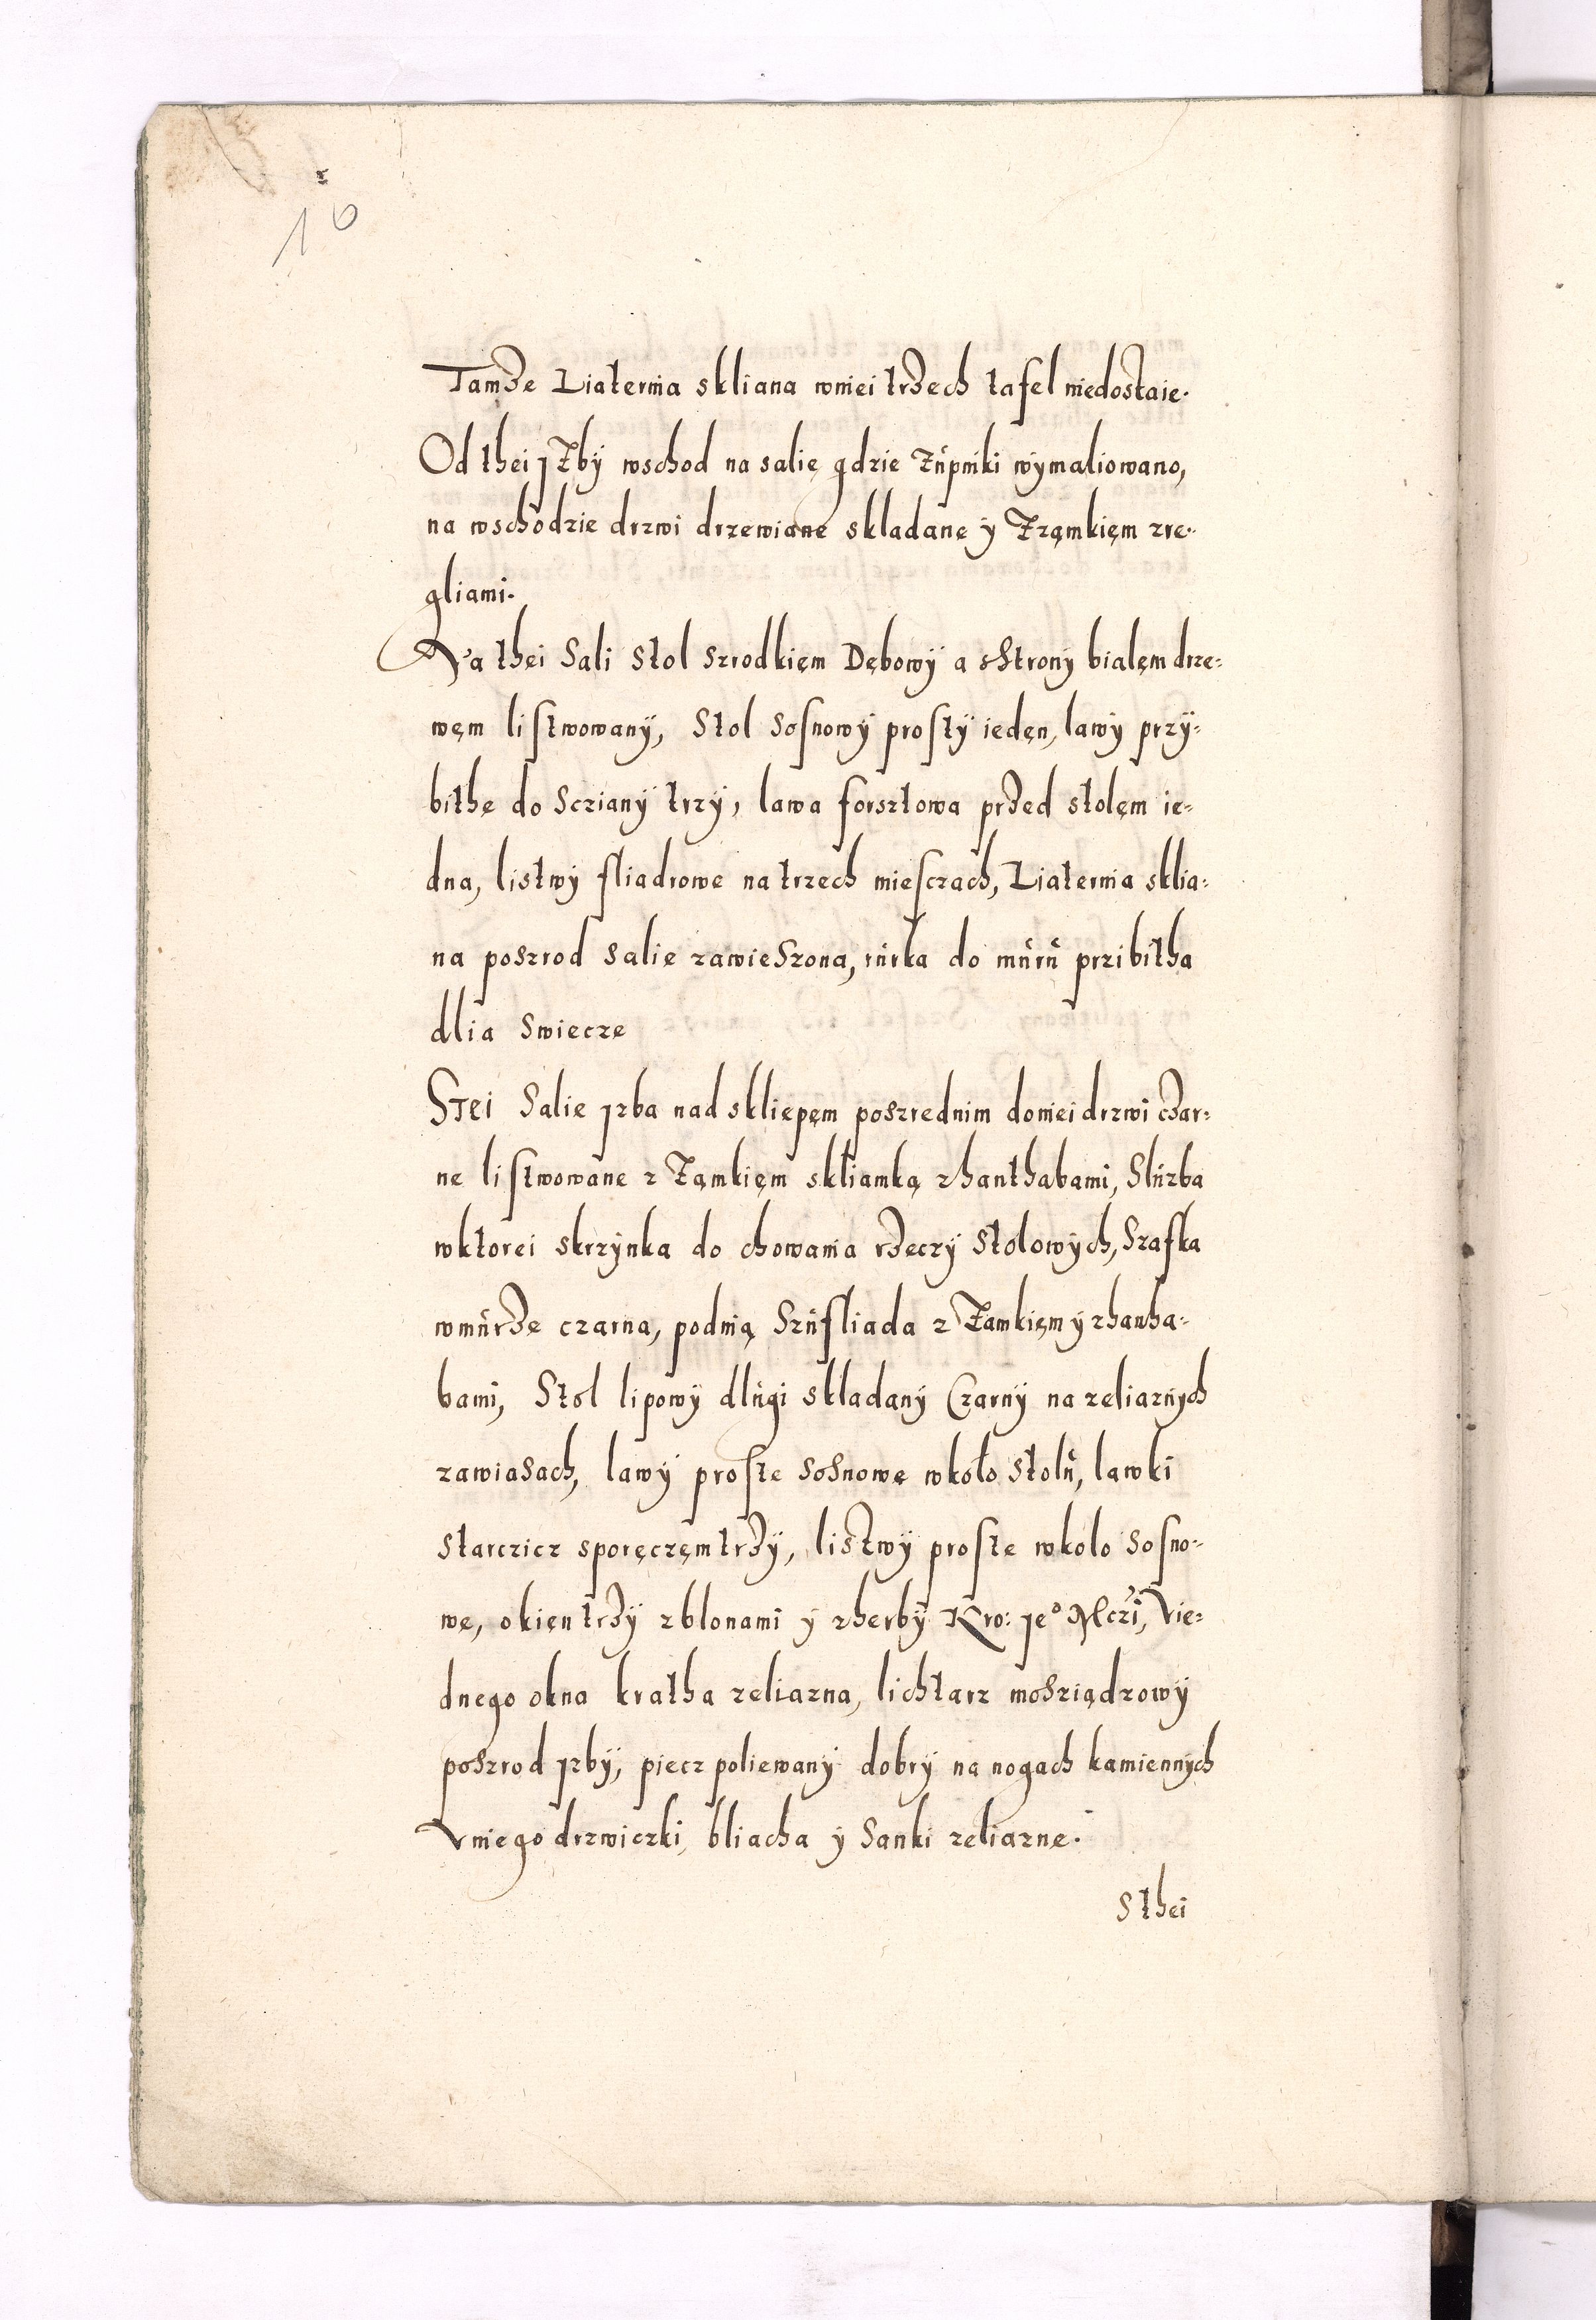 10
Tamze Liaternia skliana wniei trzech tafel niedostaie.
Od thei jzby wschod na salię gdzie zupniki wymaliowano,
na wschodzie drzwi drzewiane skladanę y Zząmkięm zre-
gliami.
Na thei Sali Stol Szrodkięm Dębowy a sStrony bialęm drze-
węm listwowany, Stol Sosnowy prosty iedęn, lawy przy-
bithę do Scziany trzy, lawa forsztowa przed stolęm ie-
dna, listwy fliadrowe na trzech miesczach, Liaternia sklia-
na poszrod Salię zawieSzona, rurka do muru przibitha
dlia Swieczę
STei Salie jzba nad skliepęm poszrednim doniei drzwi czar-
ne listwowane z Zamkięm skliamką zhanthabami, Sluzba
wktorei skrzynka do chowania rzeczy Stolowych, Szafka
wmurze czarna, podnią Szufliada z Zamkięm y zhantha-
bami, Stol lipowy dlugi skladany Czarny na zeliaznych
zawiasach, lawy proste Sosnowę wkolo Stolu, lawki
starczicz sporęczęm trzy, listwy proste wkolo Sosno-
we, okięn trzy zblonami y zherby Kro: je° Mczi, Vie-
dnego okna kratha zeliazna, lichtarz mosziądzowy
poszrod jzby, piecz poliewany dobry na nogach kamiennych
Vniego drzwiczki, bliacha y Sanki zeliazne.
Sthei